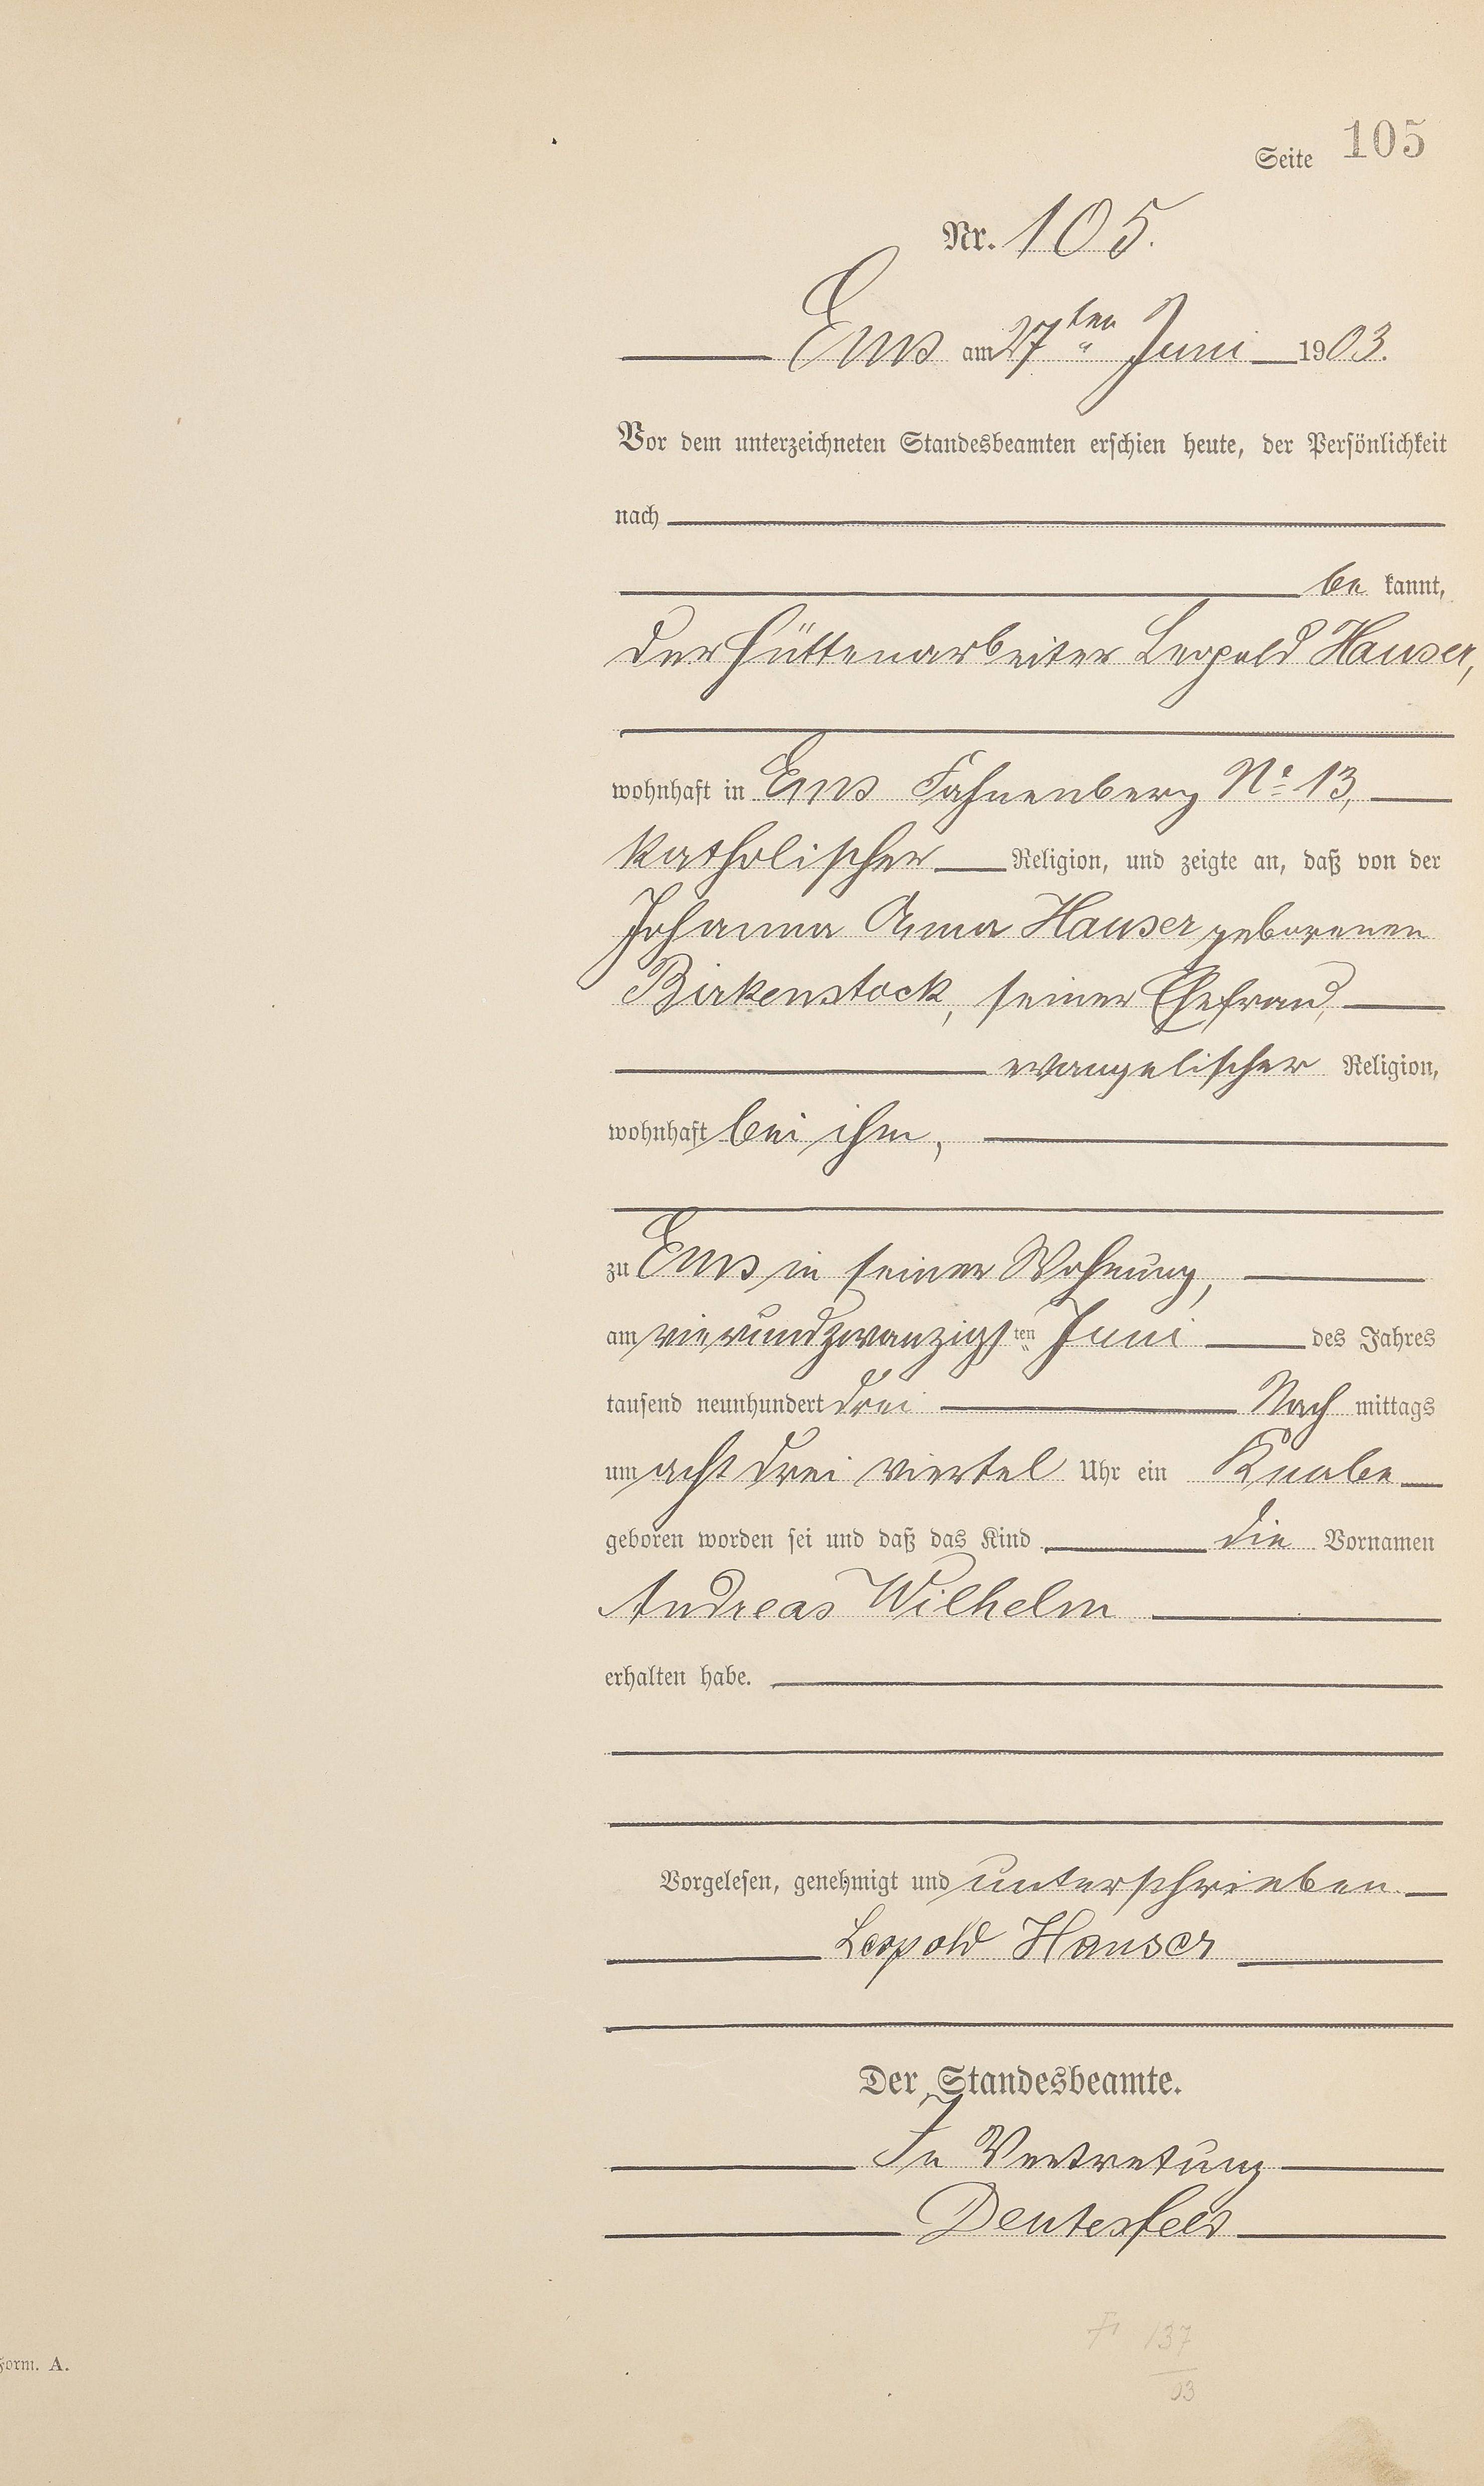 Seite 105
Nr. 105.
Ems am 27ten Juni 1903.
Vor dem unterzeichneten Standesbeamten erschien heute, der Persönlichkeit
nach
be kannt,
der Hüttenarbeiter Leopold Hauser,
wohnhaft in Ems Fahnenberg No 13,
katholischer Religion, und zeigte an, daß von der
Johanna Anna Hauser geborenen
Birkenstock, seiner Ehefrau,
evangelischer Religion,
wohnhaft bei ihm,
zu Ems in seiner Wohnung,
am vierundzwanzigsten Juni des Jahres
tausend neunhundert drei Nach mittags
um acht drei viertel Uhr ein Knabe
geboren worden sei und daß das Kind die Vornamen
Andreas Wilhelm
erhalten habe.
Vorgelesen, genehmigt und unterschrieben.
Leopold Hauser
Der Standesbeamte.
In Vertretung
Deutesfeld
137
03
Form. A.